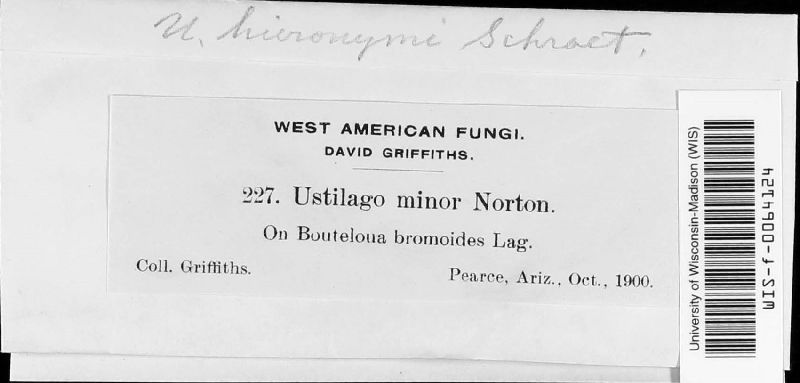 U. hieronymi Schroet.
WEST AMERICAN FUNGI.
DAVID GRIFFITHS.
227. Ustilago minor Norton.
On Bouteloua bromoides Lag.
Coll. Griffiths.
Pearce, Ariz., Oct., 1900.
University of Wisconsin-Madison (WIS)
WIS-f-0069424